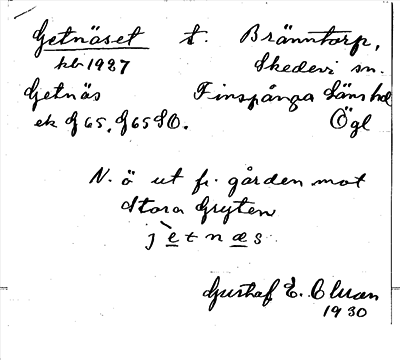 Getnäset t. Bränntorp,
kb 1927 Skedevi sn.
Getnäs Finspånga läns hd
ek G 65, G 65 SO. Ögl
N. ö ut fr. gården mot
Stora Gryten
j è t n æ s
Gustaf E. Olsson
1930